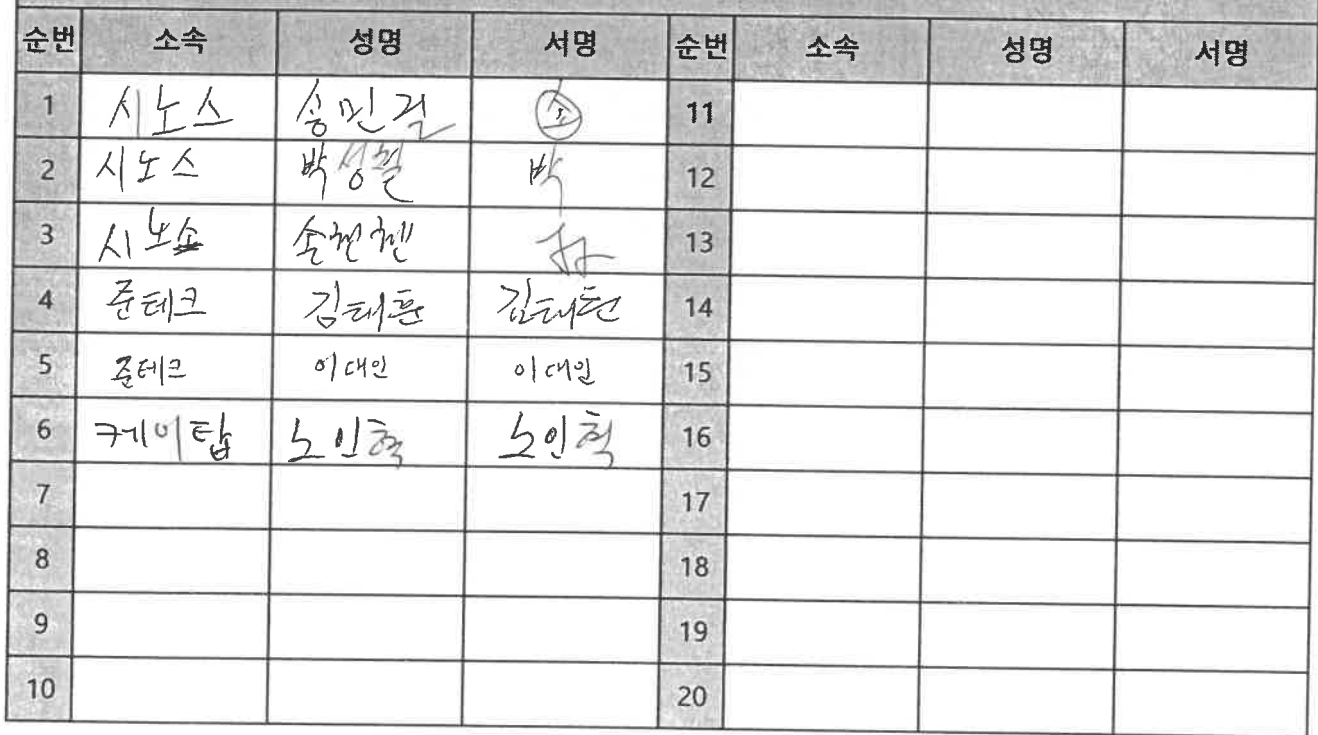 순번 소속 성명 서명 순번 소속 성명 서명
1 시노스 송민걸 11
2 시노스 박성철 박 12
3 시노스 13
4 준테크 김태훈 김태훈 14
5 준테크 이대인 이대인 15
6 케이탑 노인혁 노인혁 16
7 17
8 18
9 19
10 20